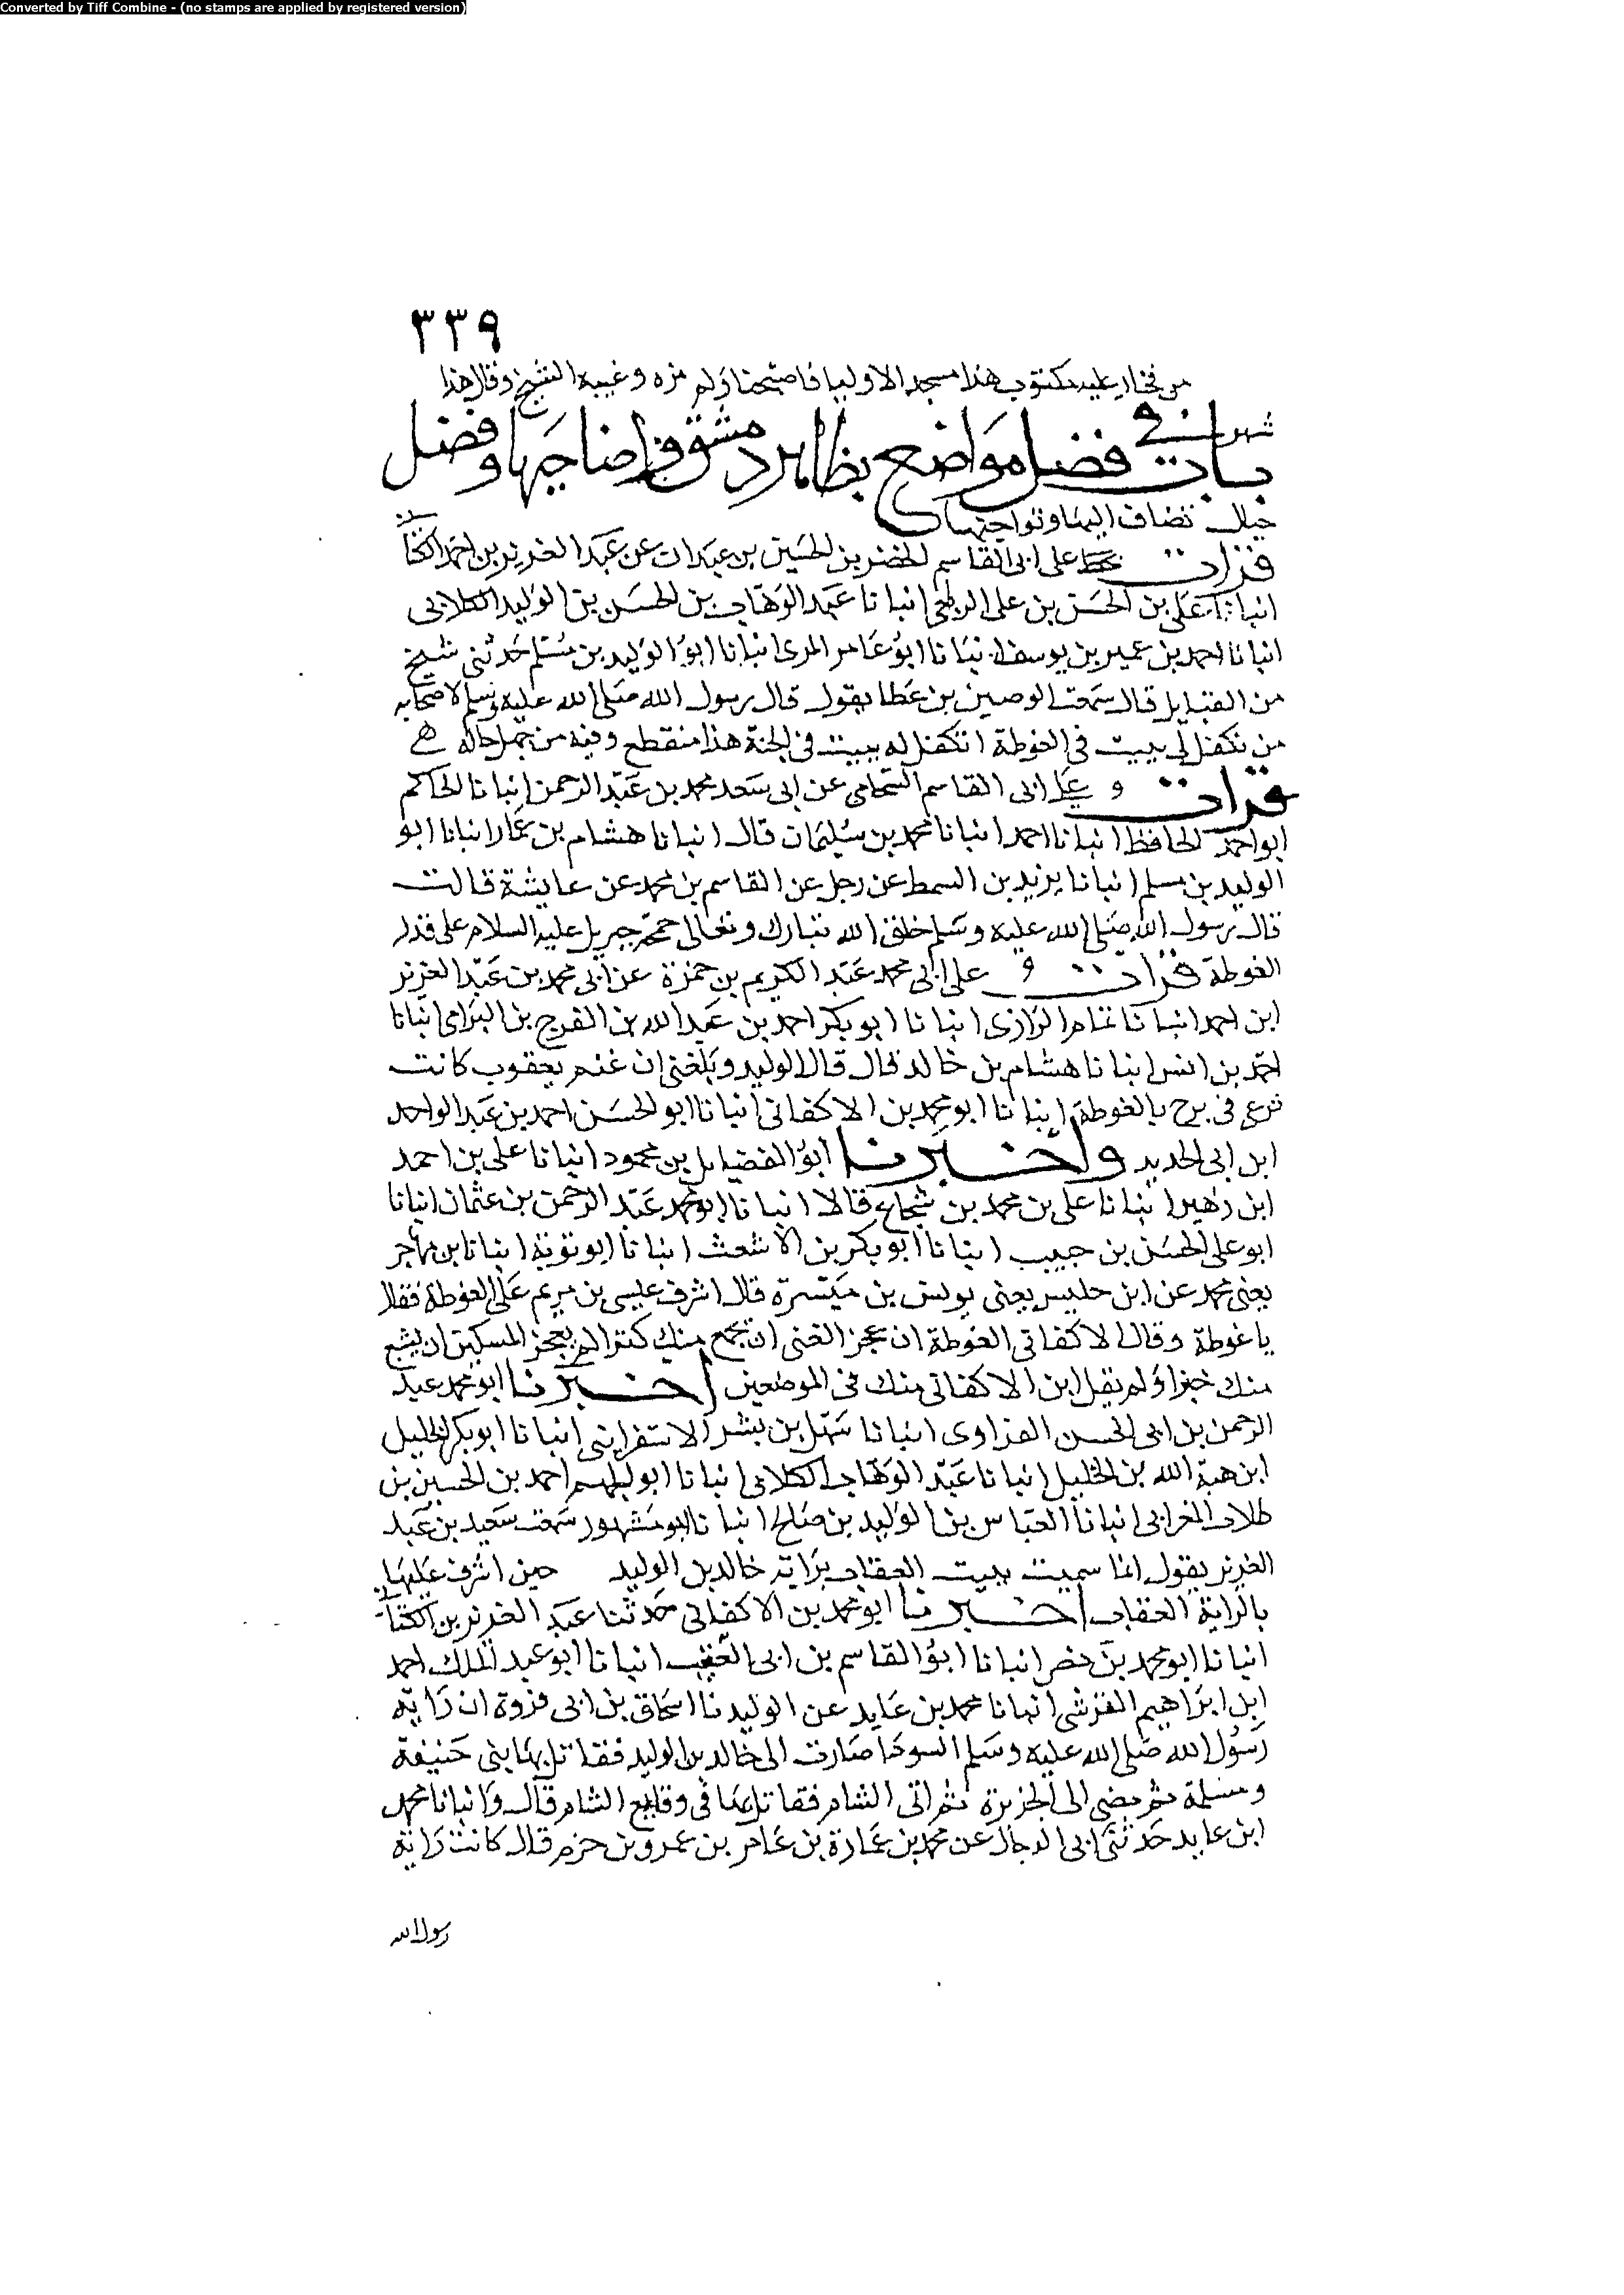 Converted by Tiff Combine - (no stamps are applied by registered version)
٣٣٩
من فخار عليه مكتوب هذا مسجد الاوليا فاصبحنا ولم نره وغيبه الشيخ وقال هذا
باب في فضل مواضع بظاهر دمشق واضاحيها وفضل
جبال تضاف اليها ونواحيها
قرات على ابى القاسم الخضر بن الحسين بن عبدان عن عبد العزيز بن احمد
انبانا على بن الحسن بن على الربعى انبانا عبد الوهاب بن الحسن بن الوليد الكلابى
انبانا احمد بن عمير بن يوسف انبانا ابو عامر المرى انبانا ابو الوليد بن مسلم حدثنى شيخ
من القبايل قال سمعت الوصين بن عطا يقول قال رسول الله صلى الله عليه وسلم لاصحابه
من تكفل لى ببيت فى الغوطة اتكفل له ببيت فى الجنة هذا منقطع وفيه من جهل حاله
قرات على ابى القاسم الشحامى عن ابى سعد محمد بن عبد الرحمن انبانا الحاكم
ابو احمد الحافظ انبانا احمد انبانا محمد بن سليمان قال انبانا هشام بن عمار انبانا ابو
الوليد بن مسلم انبانا يزيد بن السمط عن رجل عن القاسم بن محمد عن عايشة قالت
قال رسول الله صلى الله عليه وسلم خلق الله تبارك وتعالى جمجمة جبريل عليه السلام على قدر
الغوطة قرات على ابى محمد عبد الكريم بن حمزة عن ابى محمد بن عبد العزيز
ابن احمد انبانا تمام الرازى انبانا ابو بكر احمد بن عبد الله بن الفرج بن البرامى انبانا
احمد بن انس انبانا هشام بن خالد قال قال الوليد وبلغنى ان غنم يعقوب كانت
ترعى فى برج بالغوطة انبانا ابو محمد بن الاكفانى انبانا ابو الحسن احمد بن عبد الواحد
ابن ابى الحديد واخبرنا ابو الفضايل بن محمود انبانا على بن احمد
ابن زهير انبانا على بن محمد بن شجاع قالا انبانا ابو محمد عبد الرحمن بن عثمان انبانا
ابو على الحسن بن حبيب انبانا ابو بكر بن الاشعث انبانا ابو توبة انبانا بن مهاجر
يعنى محمد عن ابن حليس يعنى يونس بن ميسرة قال اشرف عيسى بن مريم على الغوطة فقال
يا غوطة وقال الاكفانى الغوطة ان عجز الغنى ان يجمع منك كنزا لم يعجز المسكين ان يشبع
منك خبزا ولم يقل ابن الاكفانى منك فى الموضعين اخبرنا ابو محمد عبد
الرحمن بن ابى الحسن الدراوى انبانا سهل بن بشر الاسفراينى انبانا ابو بكر الخليل
ابن هبة الله بن الخليل انبانا عبد الوهاب الكلابى انبانا ابو الجهم احمد بن الحسين بن
طلاب المغرابى انبانا العباس بن الوليد بن صالح انبانا ابو مشهور سمعت سعيد بن عبد
العزيز يقول انما سميت ببيت العقاب براية خالد بن الوليد حين اشرف عليها
بالراية العقاب اخبرنا ابو محمد بن الاكفانى حدثنا عبد العزيز بن
انبانا ابو محمد بن نصر انبانا ابو القاسم بن ابى العقب انبانا ابو عبد الملك احمد
ابن ابراهيم القرشى انبانا محمد بن عايد عن الوليد نا اسحاق بن ابى فروة ان راية
رسول الله صلى الله عليه وسلم السودا صارت الى خالد بن الوليد فقاتل بها بنى حنيفة
ومسلمة ثم مضى الى الجزيرة ثم اتى الشام فقاتل بها فى وقايع الشام قال وانبانا محمد
ابن عايد حدثنى ابى الدجال عن محمد بن عمارة بن عامر بن عمرو بن حزم قال كانت راية
رسول الله